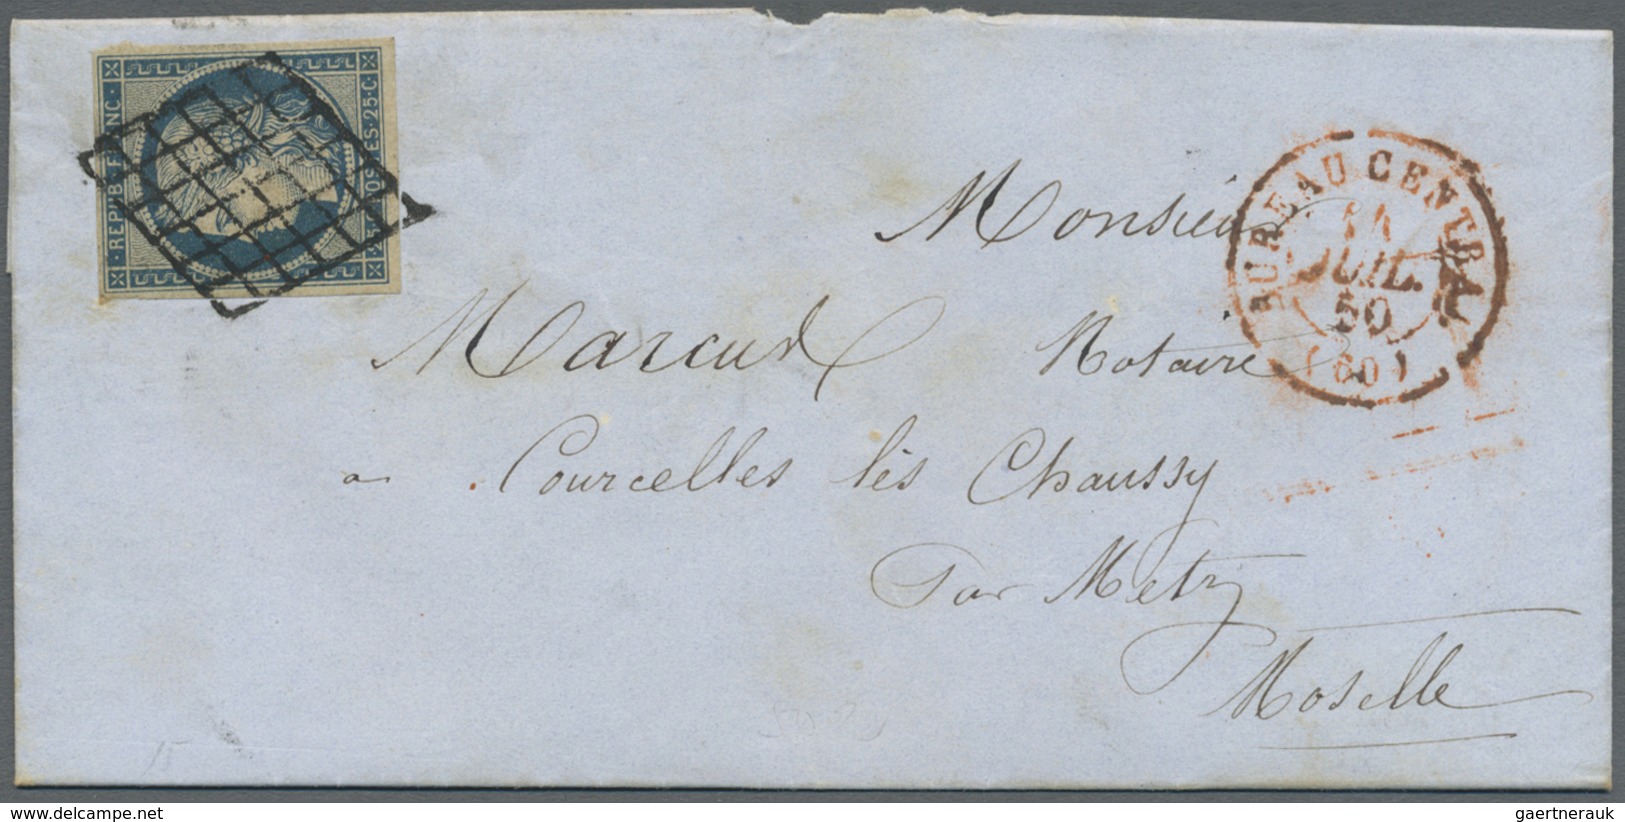 REPUB. FRANC.
25. POSTES. 25. C
BUREAU CENTRAL
14
JUIL.
50
(60)
Monsieur
Marcus Notaire
a Courcelles lès Chaussy
Par Metz
Moselle
15
delcampe.net
gaertnerauk